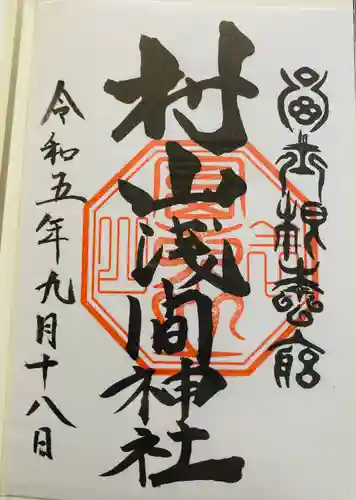 村山浅間神社
令和五年九月十八日